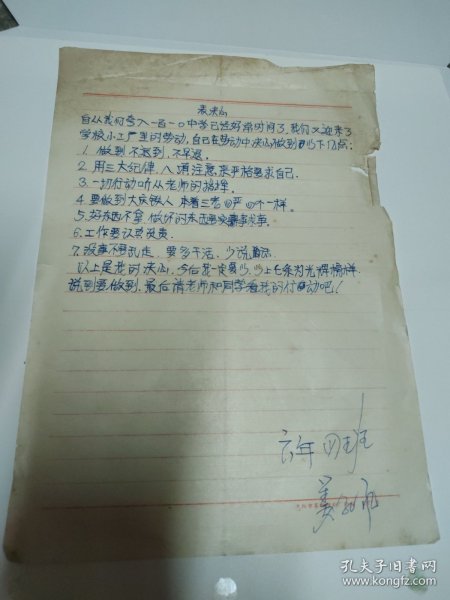 表决心
自从我们考入一百一〇中学已经好常时间了,我们又迎来了
学校小工厂里的劳动,自己在劳动中决心做到以下几点:
1. 做到不迟到,不早退。
2. 用三大纪律,八项注意来严格要求自己。
3. 一切行动听从老师的指挥。
4. 要做到大庆铁人 本着三老四严四个一样。
5. 好东西不拿 做坏的东西要
6. 工作要认真负责。
7. 没事不要乱走,要多干活,少说
以上是我的决心,今后我一定要以以上七条为光辉榜样
说到要做到,最后请老师和同学看我的行动吧!
六年四班
姜
孔夫子旧书网
www.kongfz.com